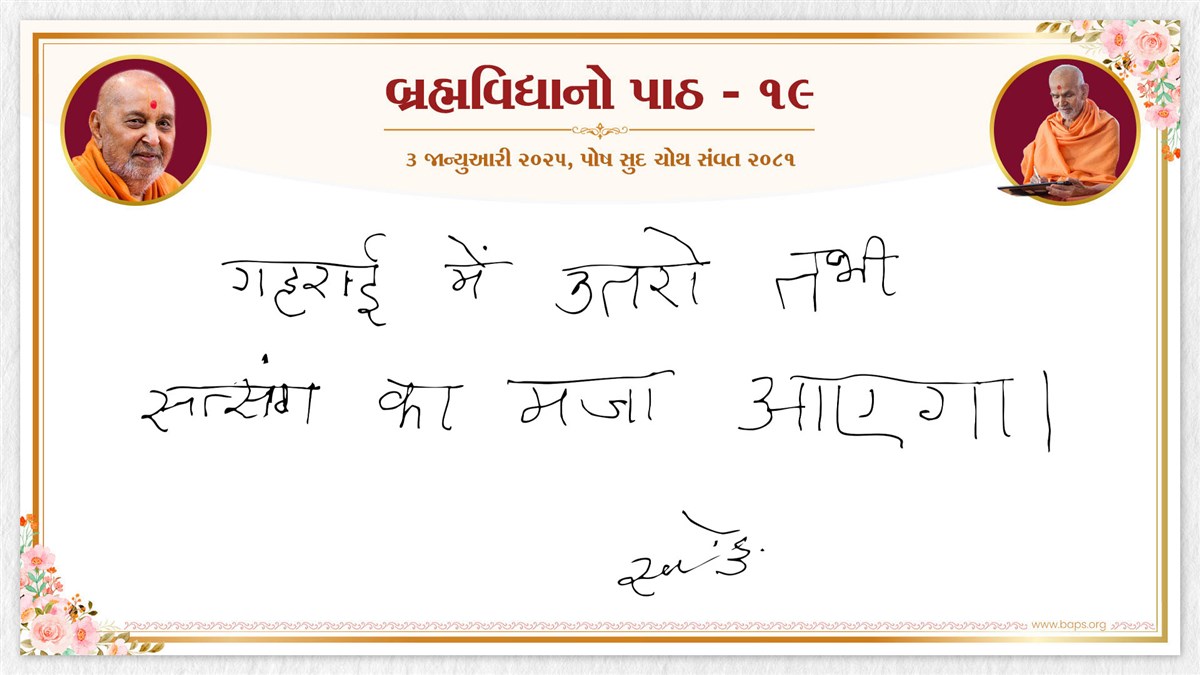 બ્રહ્મવિદ્યાનો પાઠ - ૧૯
૩ જાન્યુઆરી ૨૦૨૫, પોષ સુદ ચોથ સંવત ૨૦૮૧
गहराई में उतरो तभी
सत्संग का मजा आएगा।
www.baps.org